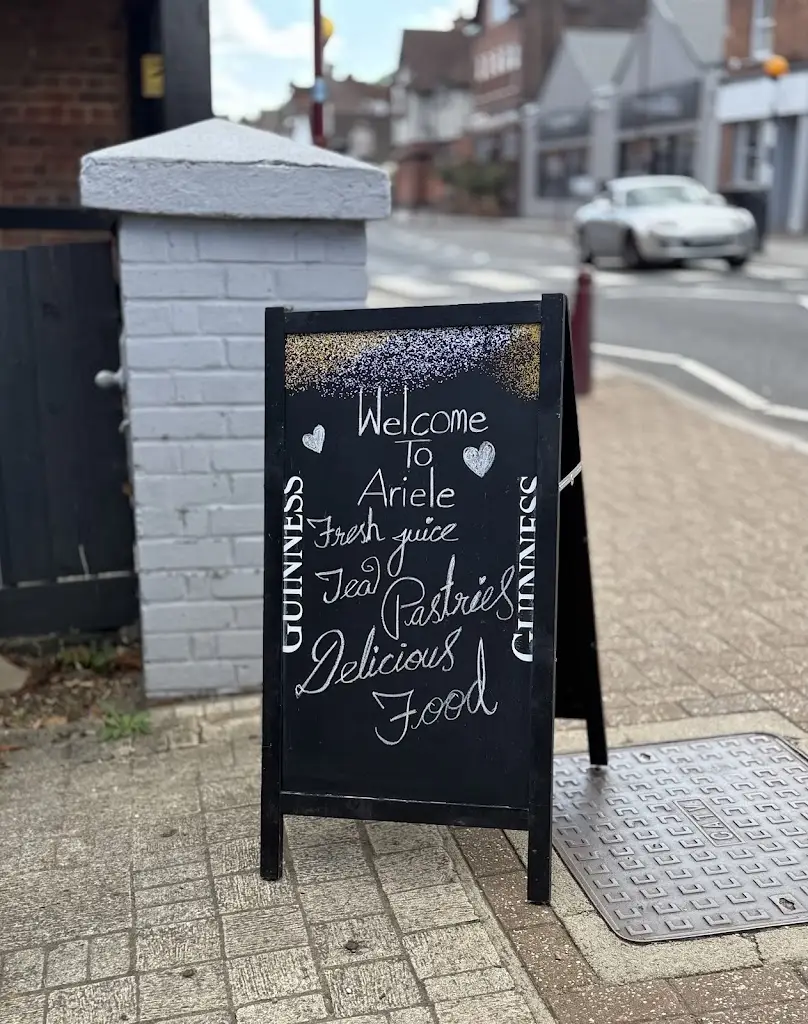 Welcome
To
Ariele
Fresh juice
Tea
Pastries
Delicious
Food
GUINNESS
GUINNESS